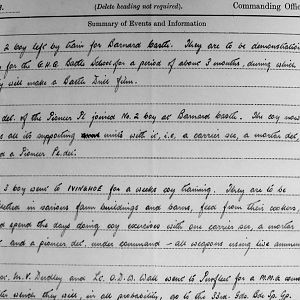 (Delete heading not required).
Commanding Offic
Summary of Events and Information
2 boy left by train for Barnard Castle. They are to be demonstration
for the G.H.Q. Battle School for a period of about 3 months, during which
will make a Battle Drill film.
det. of the Pioneer Pl. joined No. 2 boy at Barnard Castle. The coy now
as all its supporting units with it, i.e., a carrier sec, a mortar det,
d a Pioneer Pl. det.
3 boy went to IVINGHOE for a weeks coy training. They are to be
in various farm buildings and barns, feed from their cookers,
d spend the days doing coy exercises with one carrier sec, a mortar
and a pioneer det, under command - all weapons using live ammun
M.V. Dudley and Lt. O.D.B. Wall went to Purfleet for a M.M.G. course
which they will, in all probability, go to the 33rd. Gds. Bde Sp. Gp.